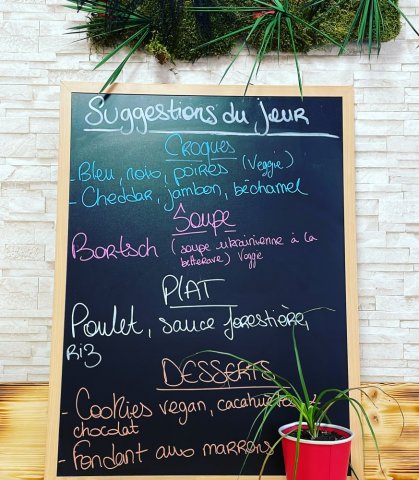 Suggestions du jour
Croques
- Bleu, noix, poires (Veggie)
- Cheddar, jambon, béchamel
Soupe
Bortsch (soupe ukrainienne à la
betterave) Veggie
PLAT
Poulet, sauce forestière,
Riz
DESSERTS
- Cookies vegan, cacahuètes
chocolat
- Fondant aux marrons